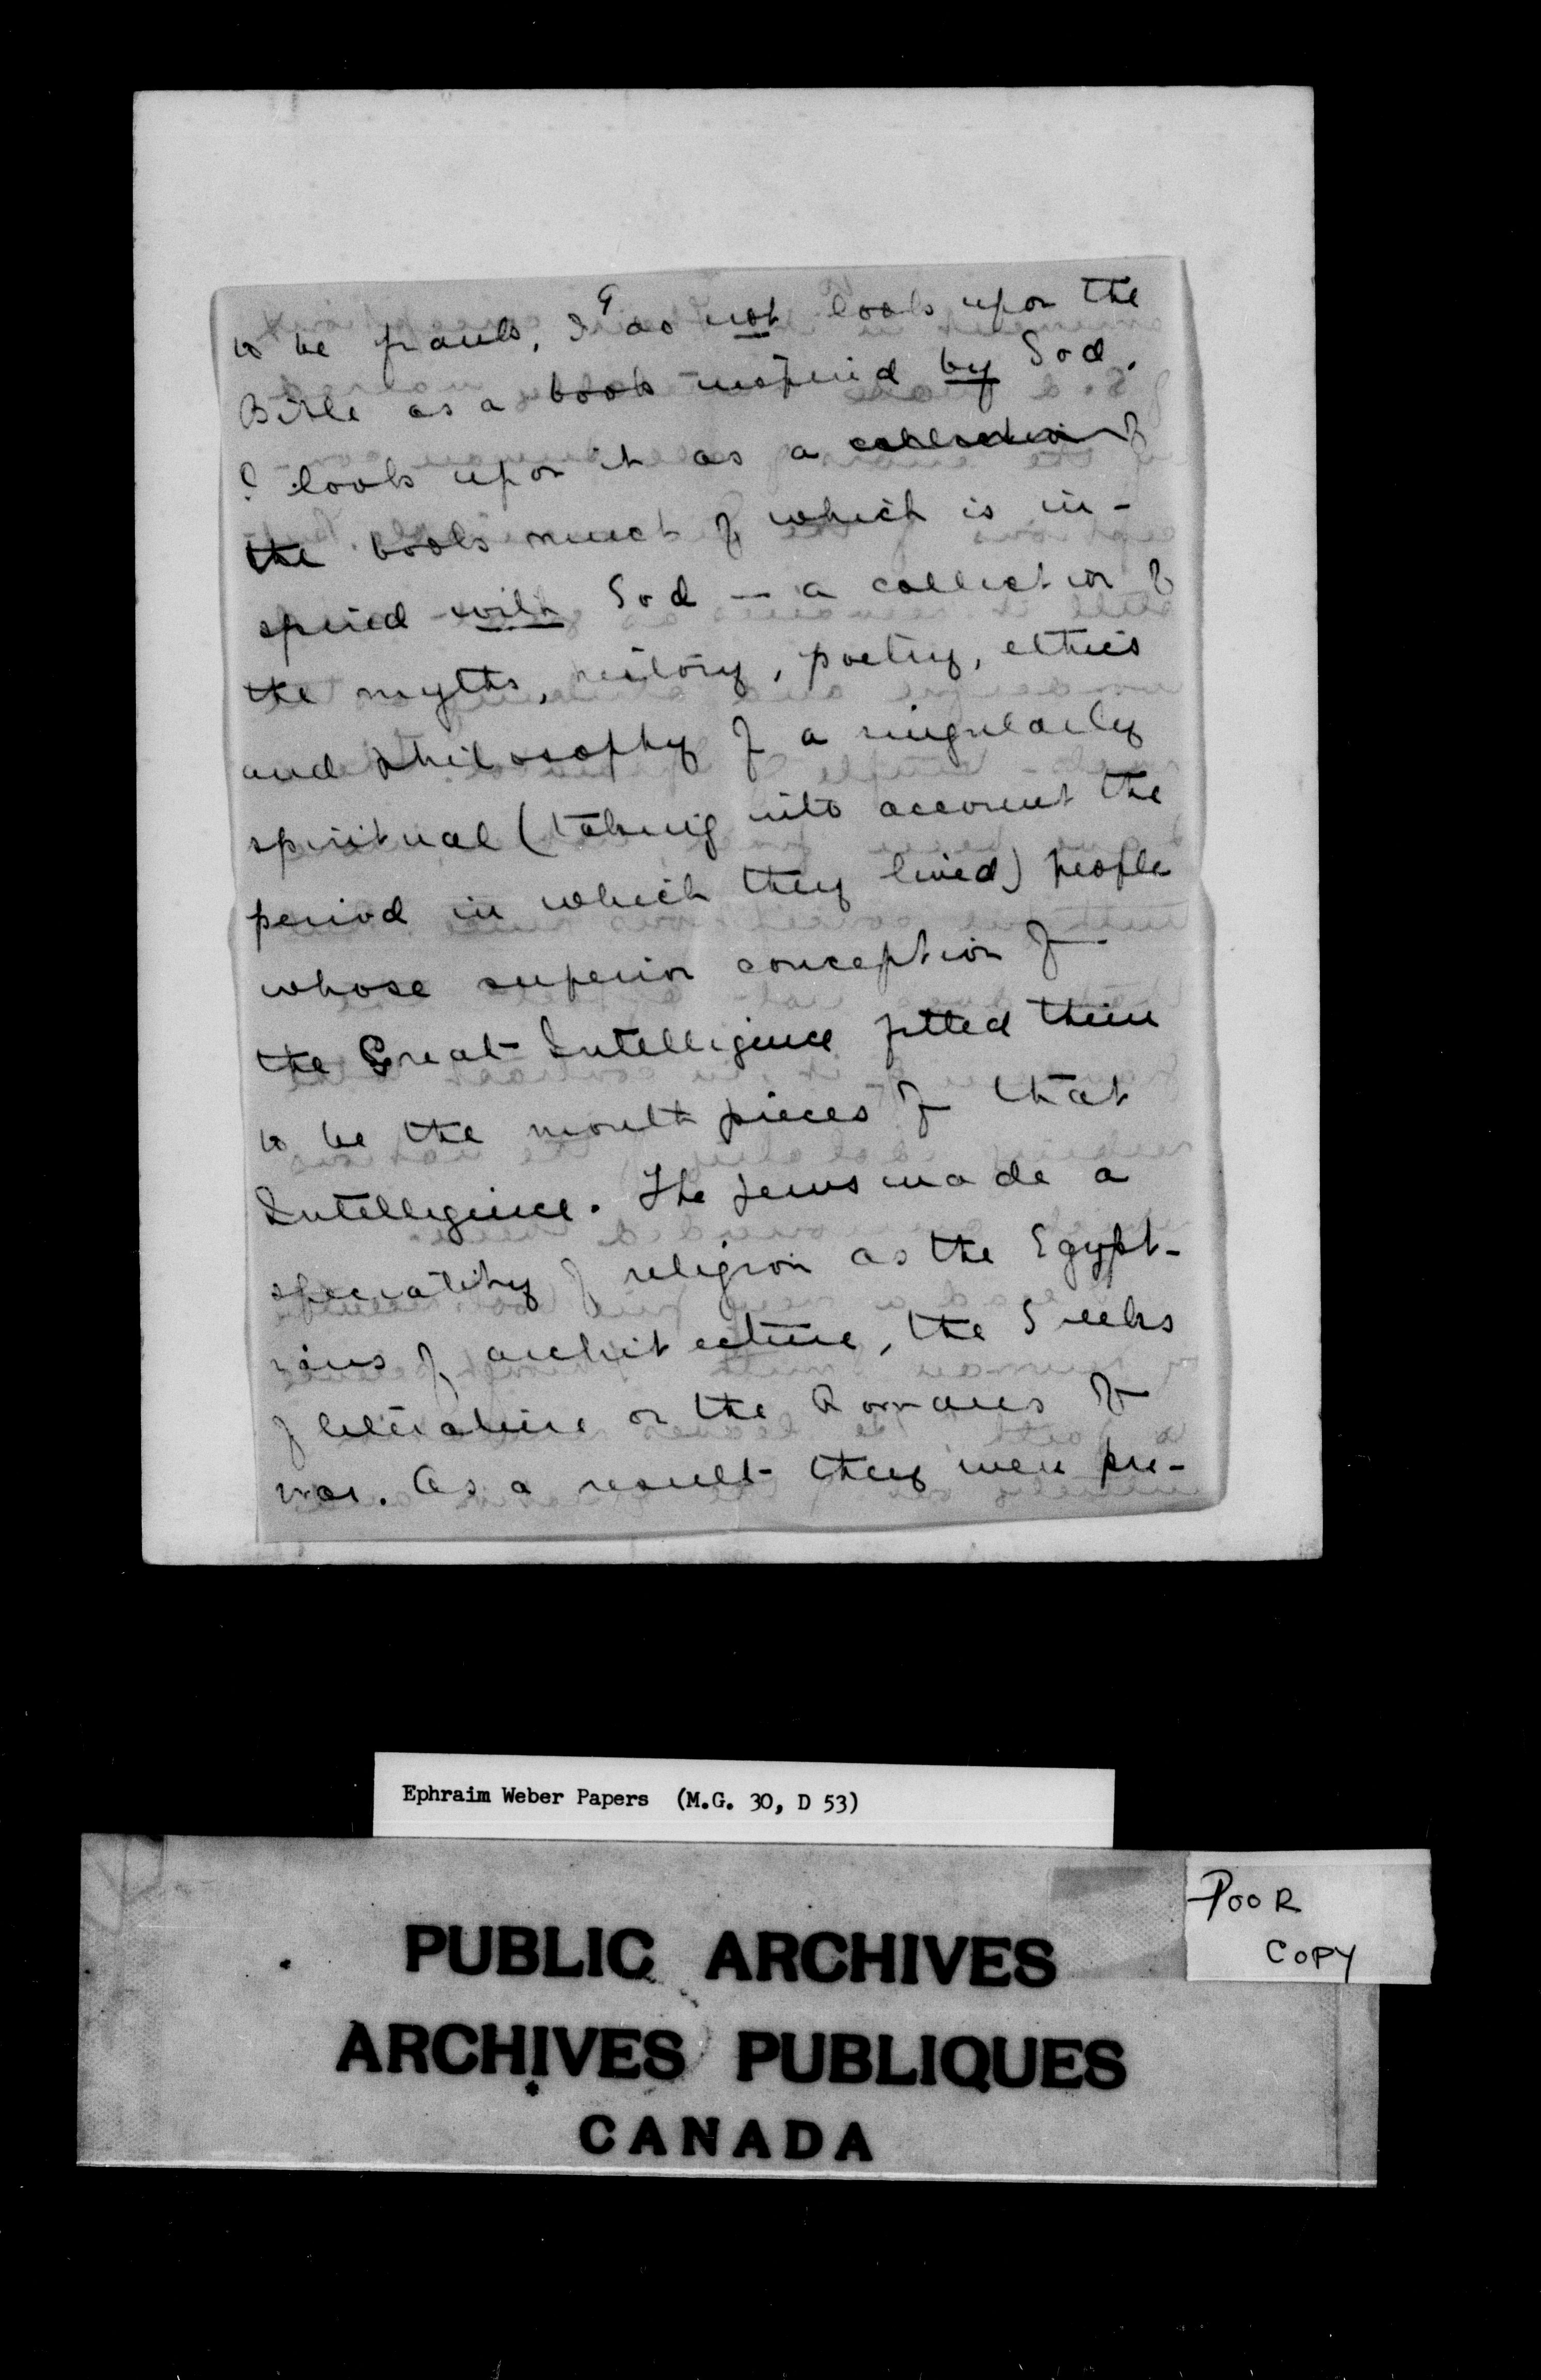 9
to be frank, I do not look upon the
Bible as a book inspired by God.
I look upon it as a collection of
the book much of which is in-
spired with God — a collection of
the myths, history, poetry, ethics
and philosophy of a singularly
spiritual (taking into account the
period in which they lived) people
whose superior conception of
the Great Intelligence fitted them
to be the mouth pieces of that
Intelligence. The Jews made a
speciality of religion as the Egypt-
ians of architecture, the Greeks
of literature or the Romans of
war. As a result they were pre-
Ephraim Weber Papers (M.G. 30, D 53)
POOR
COPY
PUBLIC ARCHIVES
ARCHIVES PUBLIQUES
CANADA